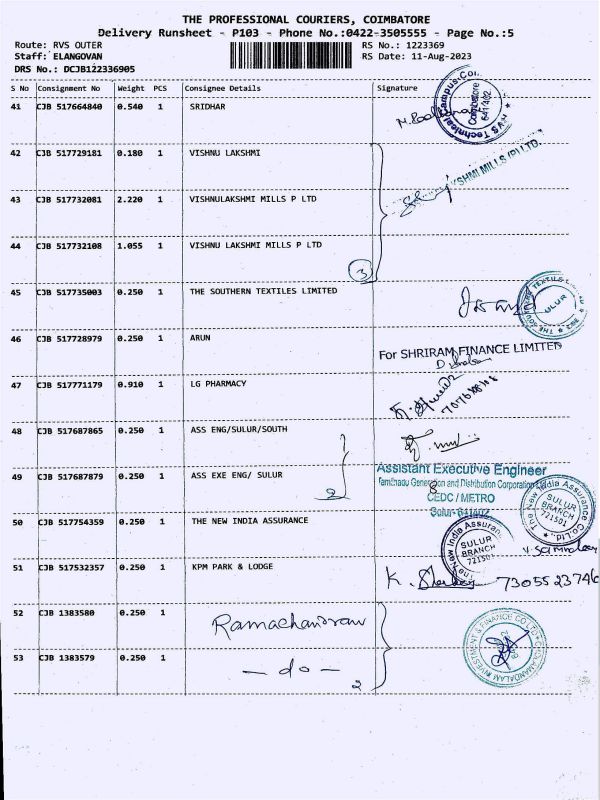 THE PROFESSIONAL COURIERS, COIMBATORE
Delivery Runsheet - P103 - Phone No.:0422-3505555 - Page No.:5
Route: RVS OUTER RS No.: 1223369
Staff: ELANGOVAN RS Date: 11-Aug-2023
DRS No.: DCJB122336905
S No Consignment No Weight PCS Consignee Details Signature
41 CJB 517664840 0.540 1 SRIDHAR
Coimbatore
641402
42 CJB 517729181 0.180 1 VISHNU LAKSHMI
KSHMI MILLS (P) LTD.
43 CJB 517732081 2.220 1 VISHNULAKSHMI MILLS P LTD
44 CJB 517732108 1.055 1 VISHNU LAKSHMI MILLS P LTD
3
45 CJB 517735003 0.250 1 THE SOUTHERN TEXTILES LIMITED
SULUR
46 CJB 517728979 0.250 1 ARUN
For SHRIRAM FINANCE LIMITED
47 CJB 517771179 0.910 1 LG PHARMACY
48 CJB 517687865 0.250 1 ASS ENG/SULUR/SOUTH
49 CJB 517687879 0.250 1 ASS EXE ENG/ SULUR
2
Assistant Executive Engineer
Tamilnadu Generation and Distribution Corporation Ltd
CEDC / METRO
Sulur-641402
50 CJB 517754359 0.250 1 THE NEW INDIA ASSURANCE
The New India Assurance Co.Ltd.
SULUR
BRANCH
721501
The New India Assurance
SULUR
BRANCH
721501
51 CJB 517532357 0.250 1 KPM PARK & LODGE
7305523746
52 CJB 1383580 0.250 1 Ramachandran
53 CJB 1383579 0.250 1 - do -
2
CHOLAMANDALAM INVESTMENT & FINANCE CO LTD